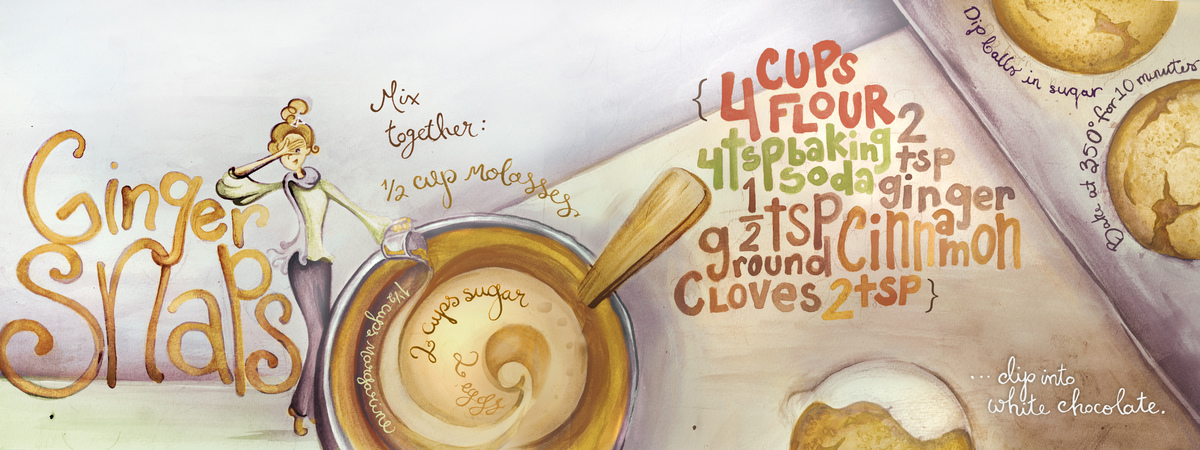 Ginger
Snaps
Mix
together:
1/2 cup molasses
1 1/2 cups margarine
2 cups sugar
2
eggs
{ 4 CUPS
FLOUR
4 tsp baking
soda
2
tsp
ginger
1/2 tsp
ground
CLOVES
Cinnamon
2 tsp }
Dip balls in sugar
Bake at 350° for 10 minutes
... dip into
white chocolate.